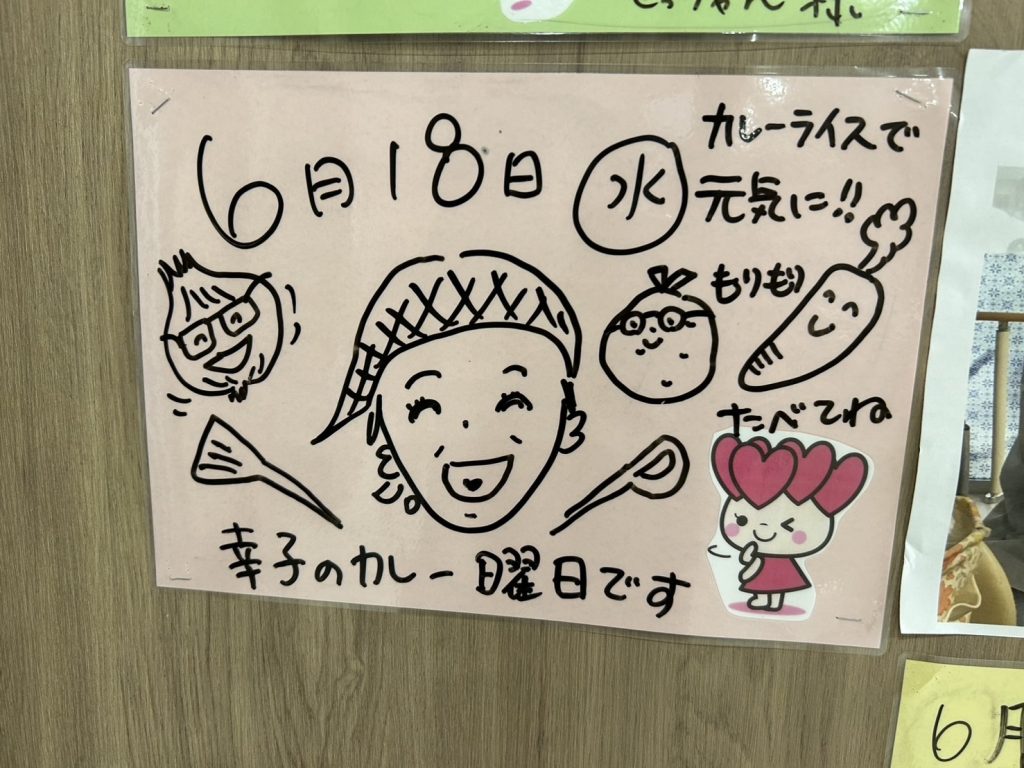 6月18日 水
カレーライスで
元気に!!
もりもり
たべてね
幸子のカレー曜日です
6月